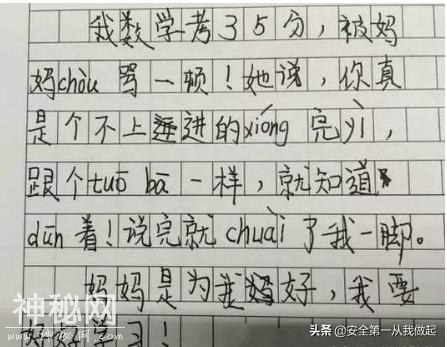 我数学考35分，被妈
妈chòu 骂一顿！她说，你真
是个不上进的xióng 完yì，
跟个tuō bā 一样，就知道
dūn 着！说完就 chuài 了我一脚。
妈妈是为我好，我要
好好学习！
神秘网
头条 @安全第一从我做起